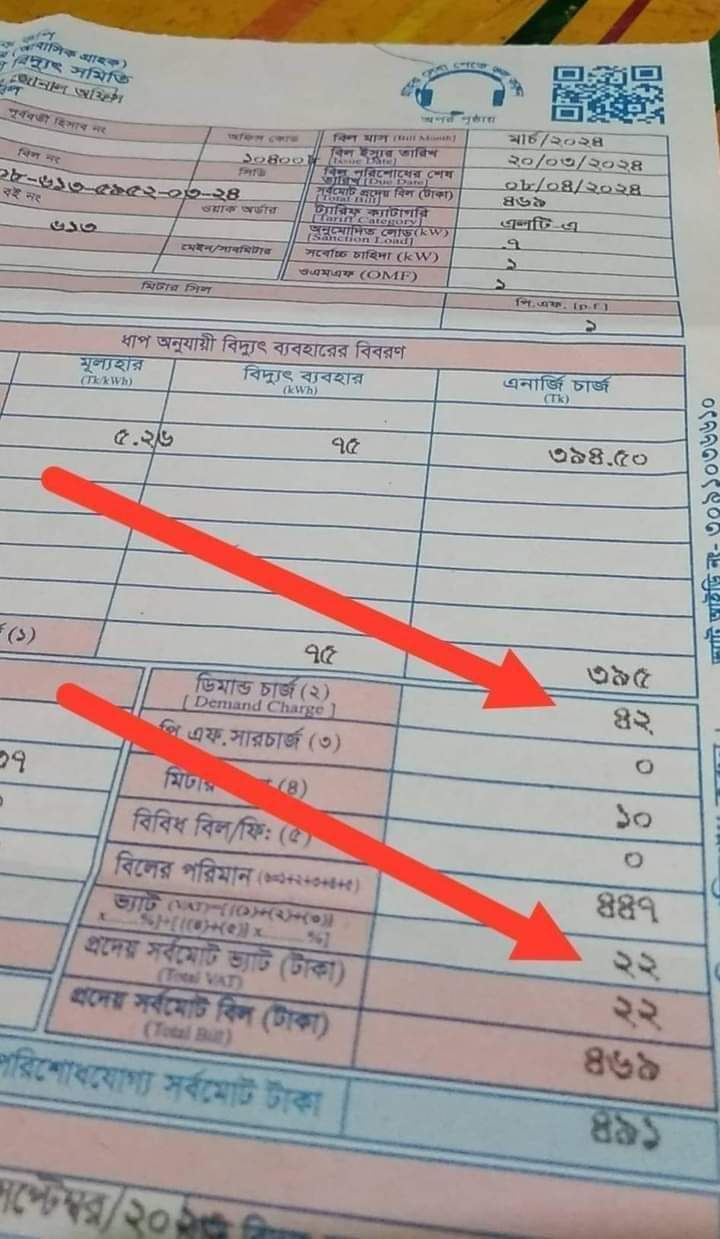 কপি
(আবাসিক গ্রাহক)
বিদ্যুৎ সমিতি
জোনাল অফিস
পূর্ববর্তী হিসাব নং
অফিস কোড
বিল মাস (Bill Month)
মার্চ/২০২৪
বিল নং
১০৪০০৮
বিল ইস্যুর তারিখ
[Issue Date]
২০/০৩/২০২৪
০৮-৬১৩-৫৯৫২-০৩-২৪
সিডি
বিল পরিশোধের শেষ
তারিখ [Due Date]
০৮/০৪/২০২৪
বই নং
সর্বমোট প্রদেয় বিল (টাকা)
[Total Bill]
৪৬৯
৬১৩
ওয়াক অর্ডার
ট্যারিফ ক্যাটাগরি
[Tariff Category]
এলটি-এ
অনুমোদিত লোড(kW)
[Sanction Load]
.৭
মেইন/সাবমিটার
সর্বোচ্চ চাহিদা (kW)
১
ওএমএফ (OMF)
১
মিটার সিল
পি.এফ. [p.f]
১
ধাপ অনুযায়ী বিদ্যুৎ ব্যবহারের বিবরণ
মূল্যহার
(Tk/kWh)
বিদ্যুৎ ব্যবহার
(kWh)
এনার্জি চার্জ
(Tk)
৫.২৬
৭৫
৩৯৪.৫০
(১)
৭৫
৩৯৫
ডিমান্ড চার্জ (২)
[ Demand Charge ]
৪২
পি এফ.সারচার্জ (৩)
০
মিটার (৪)
১০
বিবিধ বিল/ফি: (৫)
০
বিলের পরিমান (১+২+৩+৪+৫)
৪৪৭
ভ্যাট
২২
প্রদেয় সর্বমোট ভ্যাট (টাকা)
(Total VAT)
২২
প্রদেয় সর্বমোট বিল (টাকা)
(Total Bill)
৪৬৯
পরিশোধযোগ্য সর্বমোট টাকা
৪৯১